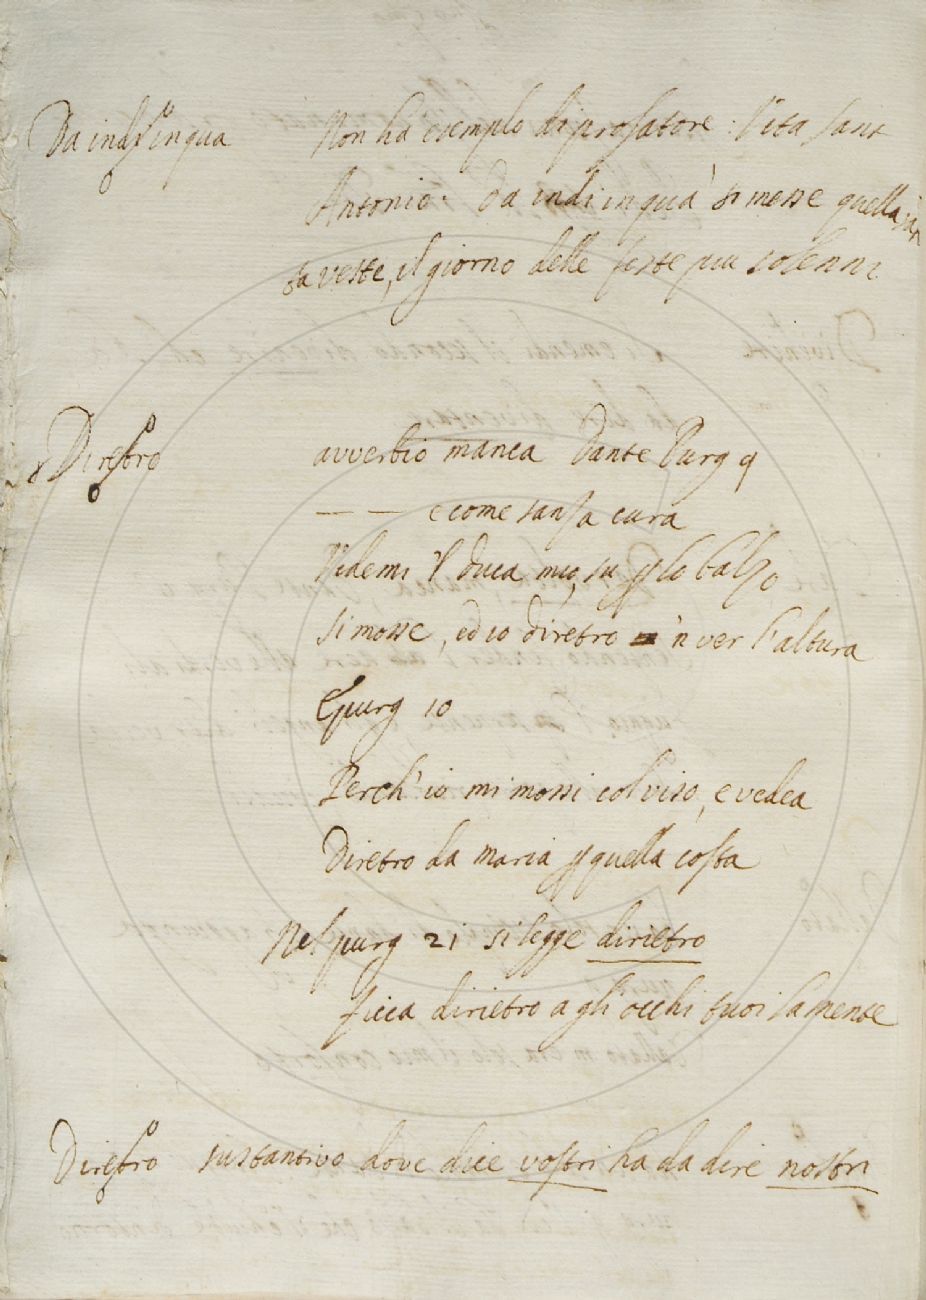 Da indi inqua Non ha esemplo di prosatore. Vita Sant
Antonio. Da indi inquà si messe quella san
ta veste, il giorno delle feste piu solenni
Diretro avverbio manca Dante Purg 9
— — e come sanza cura
Videmi 'l duca mio, su p lo balzo
si mosse, ed io diretro 'n ver l'altura
E purg 10
Perch' io mi mossi col viso, e vedea
Diretro da maria p quella costa
Nel purg 21 si legge dirietro
ficca dirietro a gli occhi tuoi la mente
Diretro sustantivo dove dice vostri ha da dire nostri